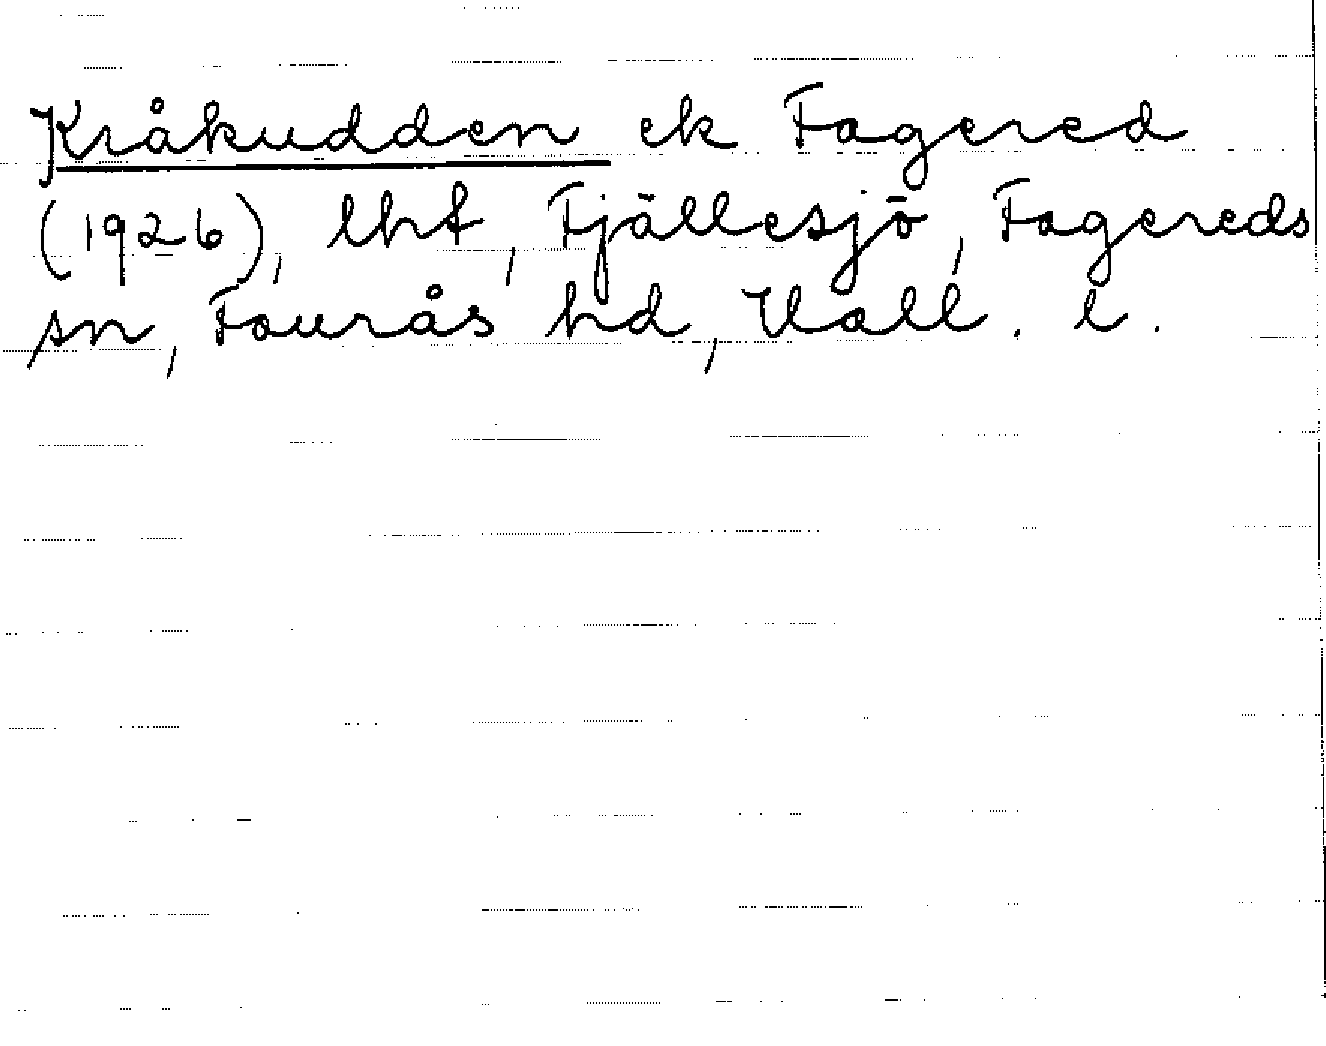 Kråkudden ek Fagered
(1926), lht, Fjällesjö, Fagereds
sn, Faurås hd, Hall. l.